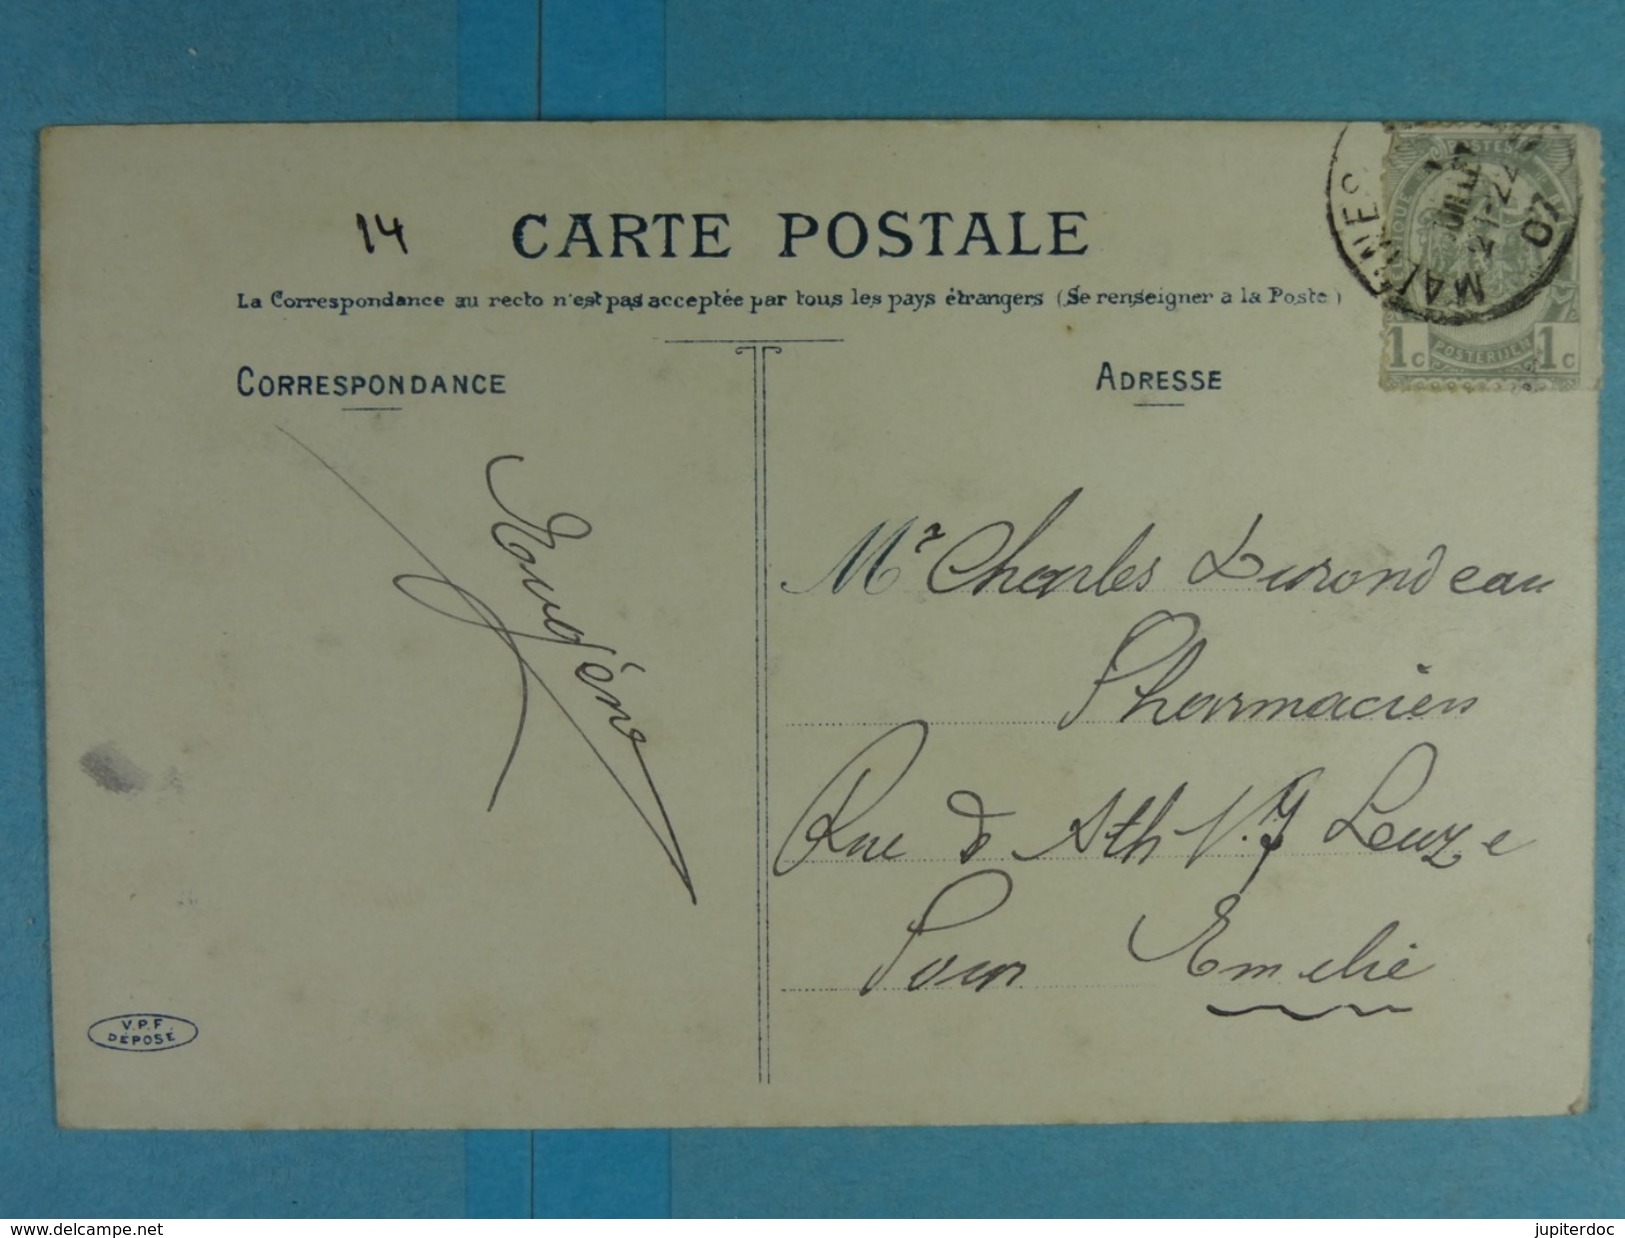 14
CARTE POSTALE
La Correspondance au recto n'est pas acceptée par tous les pays étrangers (Se renseigner a la Poste)
CORRESPONDANCE
ADRESSE
MALINES
21-22
07
1c POSTERIJEN 1c
Eugène
Mr Charles Durondeau
Pharmacien
Rue d'Ath V.J Leuze
Pour Emelie
V.P.F.
DÉPOSÉ
www.delcampe.net
jupiterdoc